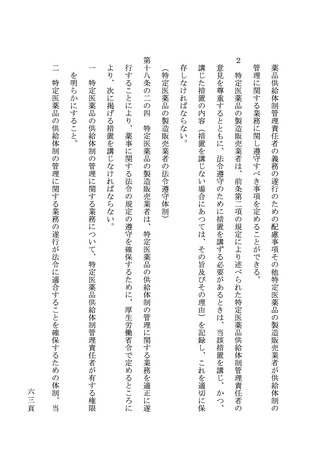 薬品供給体制管理責任者の義務の遂行のための配慮事項その他特定医薬品の製造販売業者が供給体制の
管理に関する業務に関し遵守すべき事項を定めることができる。
２　特定医薬品の製造販売業者は、前条第二項の規定により述べられた特定医薬品供給体制管理責任者の
意見を尊重するとともに、法令遵守のために措置を講ずる必要があるときは、当該措置を講じ、かつ、
講じた措置の内容（措置を講じない場合にあつては、その旨及びその理由）を記録し、これを適切に保
存しなければならない。
（特定医薬品の製造販売業者の法令遵守体制）
第十八条の二の四　特定医薬品の製造販売業者は、特定医薬品の供給体制の管理に関する業務を適正に遂
行することにより、薬事に関する法令の規定の遵守を確保するために、厚生労働省令で定めるところに
より、次に掲げる措置を講じなければならない。
一　特定医薬品の供給体制の管理に関する業務について、特定医薬品供給体制管理責任者が有する権限
を明らかにすること。
二　特定医薬品の供給体制の管理に関する業務の遂行が法令に適合することを確保するための体制、当
六三頁